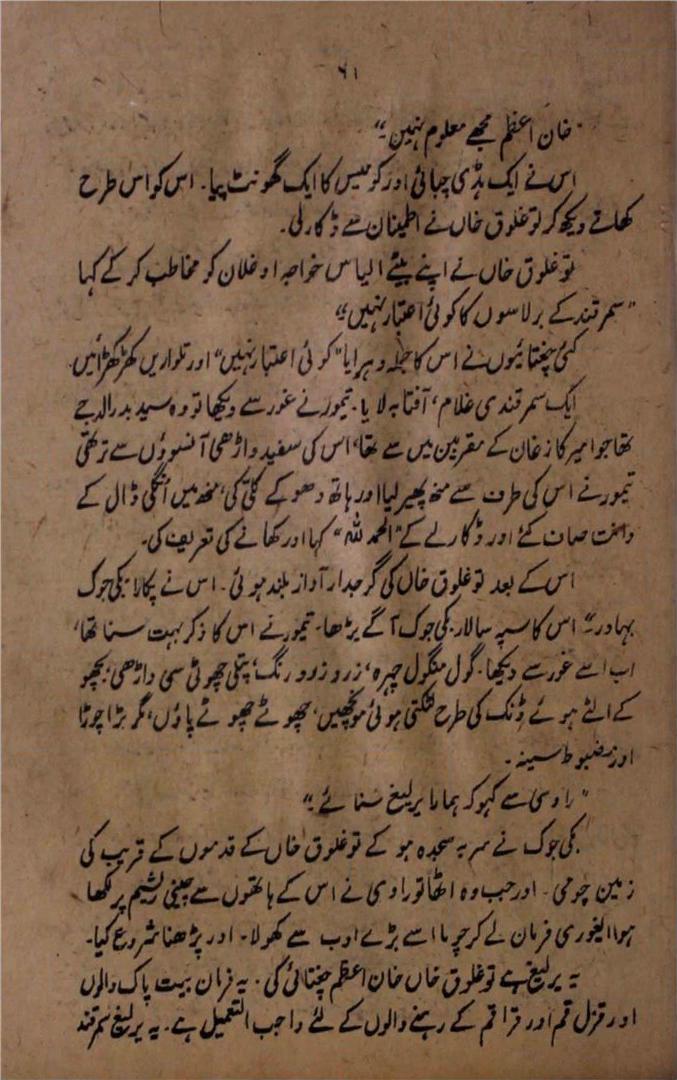 ۶۱
"خان اعظم مجھے معلوم نہیں۔"
اس نے ایک ہڈی چبائی اور کومیس کا ایک گھونٹ پیا۔ اس کو اس طرح
کھاتے دیکھ کر توغلوق خاں نے اطینان سے ڈکار لی۔
توغلوق خاں نے اپنے بیٹے الیاس خواجہ اوغلان کو مخاطب کر کے کہا
"سمرقند کے برلاسوں کا کوئی اعتبار نہیں"
کئی چغتائیوں نے اس کا جملہ دہرایا "کوئی اعتبار نہیں" اور تلواریں کھڑکھڑائیں
ایک سمرقندی غلام، آفتابہ لایا۔ تیمور نے غور سے دیکھا تو وہ سید بدرالدجے
تھا جو امیر کازغان کے مقربین میں سے تھا، اس کی سفید داڑھی آنسوؤں سے تر تھی
تیمور نے اس کی طرف سے منھ پھیر لیا اور ہاتھ دھو کے کلی کی، منھ میں انگلی ڈال کے
دانت صاف کئے اور ڈکار لے کے "الحمد للہ" کہا اور کھانے کی تعریف کی۔
اس کے بعد توغلوق خاں کی گرجدار آواز بلند ہوئی۔ اس نے پکارا۔ بکی جوک
بہادر"۔ اس کا سپہ سالار بکی جوک آگے بڑھا۔ تیمور نے اس کا ذکر بہت سنا تھا،
اب اسے غور سے دیکھا۔ گول منگول چہرہ، زرد زرد رنگ، پتلی چھوٹی سی داڑھی، بچھو
کے الٹے ہوئے ڈنک کی طرح لٹکتی ہوئی مونچھیں، چھوٹے چھوٹے پاؤں، مگر بڑا چوڑا
اور مضبوط سینہ۔
"راوی سے کہو کہ ہمارا یرلیغ سنائے۔"
بکی جوک نے سر بہ سجدہ ہو کے توغلوق خاں کے قدموں کے قریب کی
زمین چومی۔ اور جب وہ اٹھا تو راوی نے اس کے ہاتھوں سے چینی ریشم پر لکھا
ہوا ایغوری فرمان لے کر چوما اسے بڑے ادب سے کھولا۔ اور پڑھنا شروع کیا۔
یہ یرلیغ ہے توغلوق خاں خان اعظم چغتائی کی۔ یہ فرمان بیت پاک والوں
اور قزل قم اور قرا قم کے رہنے والوں کے لئے واجب التعمیل ہے۔ یہ یرلیغ سمرقند